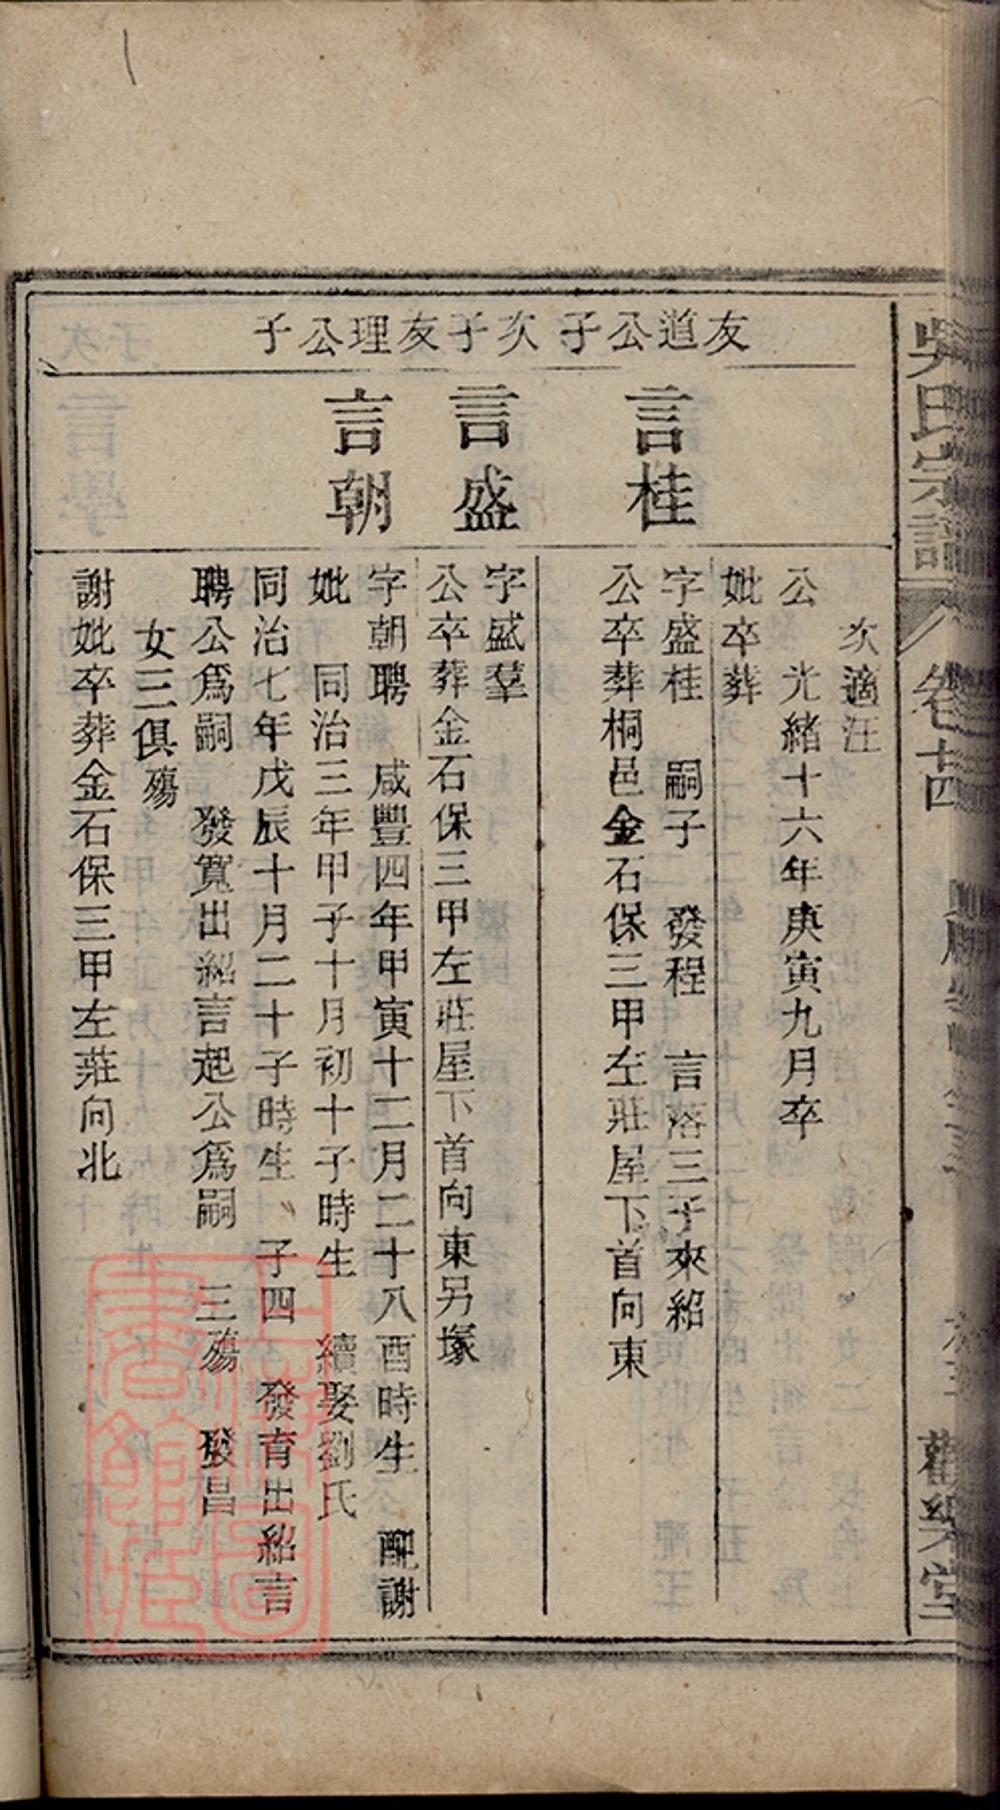 吳氏宗譜
卷十四
友道公子 次子 友理公子
言桂
言盛
言朝
次適汪
公 光緒十六年庚寅九月卒
妣卒葬
字盛桂 嗣子 發程 言洛三子來紹
公卒葬桐邑金石保三甲左莊屋下首向東
字盛羣
公卒葬金石保三甲左莊屋下首向東另塚
字朝聘 咸豐四年甲寅十二月二十八酉時生 配謝
妣 同治三年甲子十月初十子時生 續娶劉氏
同治七年戊辰十月二十子時生 子四 發育出紹言
聘公爲嗣 發寬出紹言起公爲嗣 三殤 發昌
女三俱殤
謝妣卒葬金石保三甲左莊向北